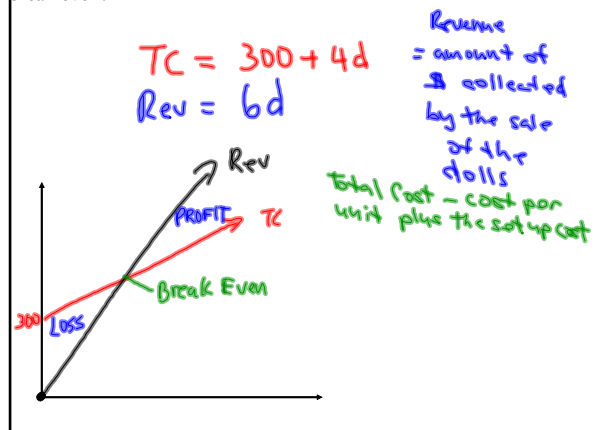 TC = 300 + 4d
Rev = 6d
Revenue
= amount of
$ collected
by the sale
of the
dolls
Total Cost - cost per
unit plus the set up cost
Rev
PROFIT
TC
Break Even
300
LOSS